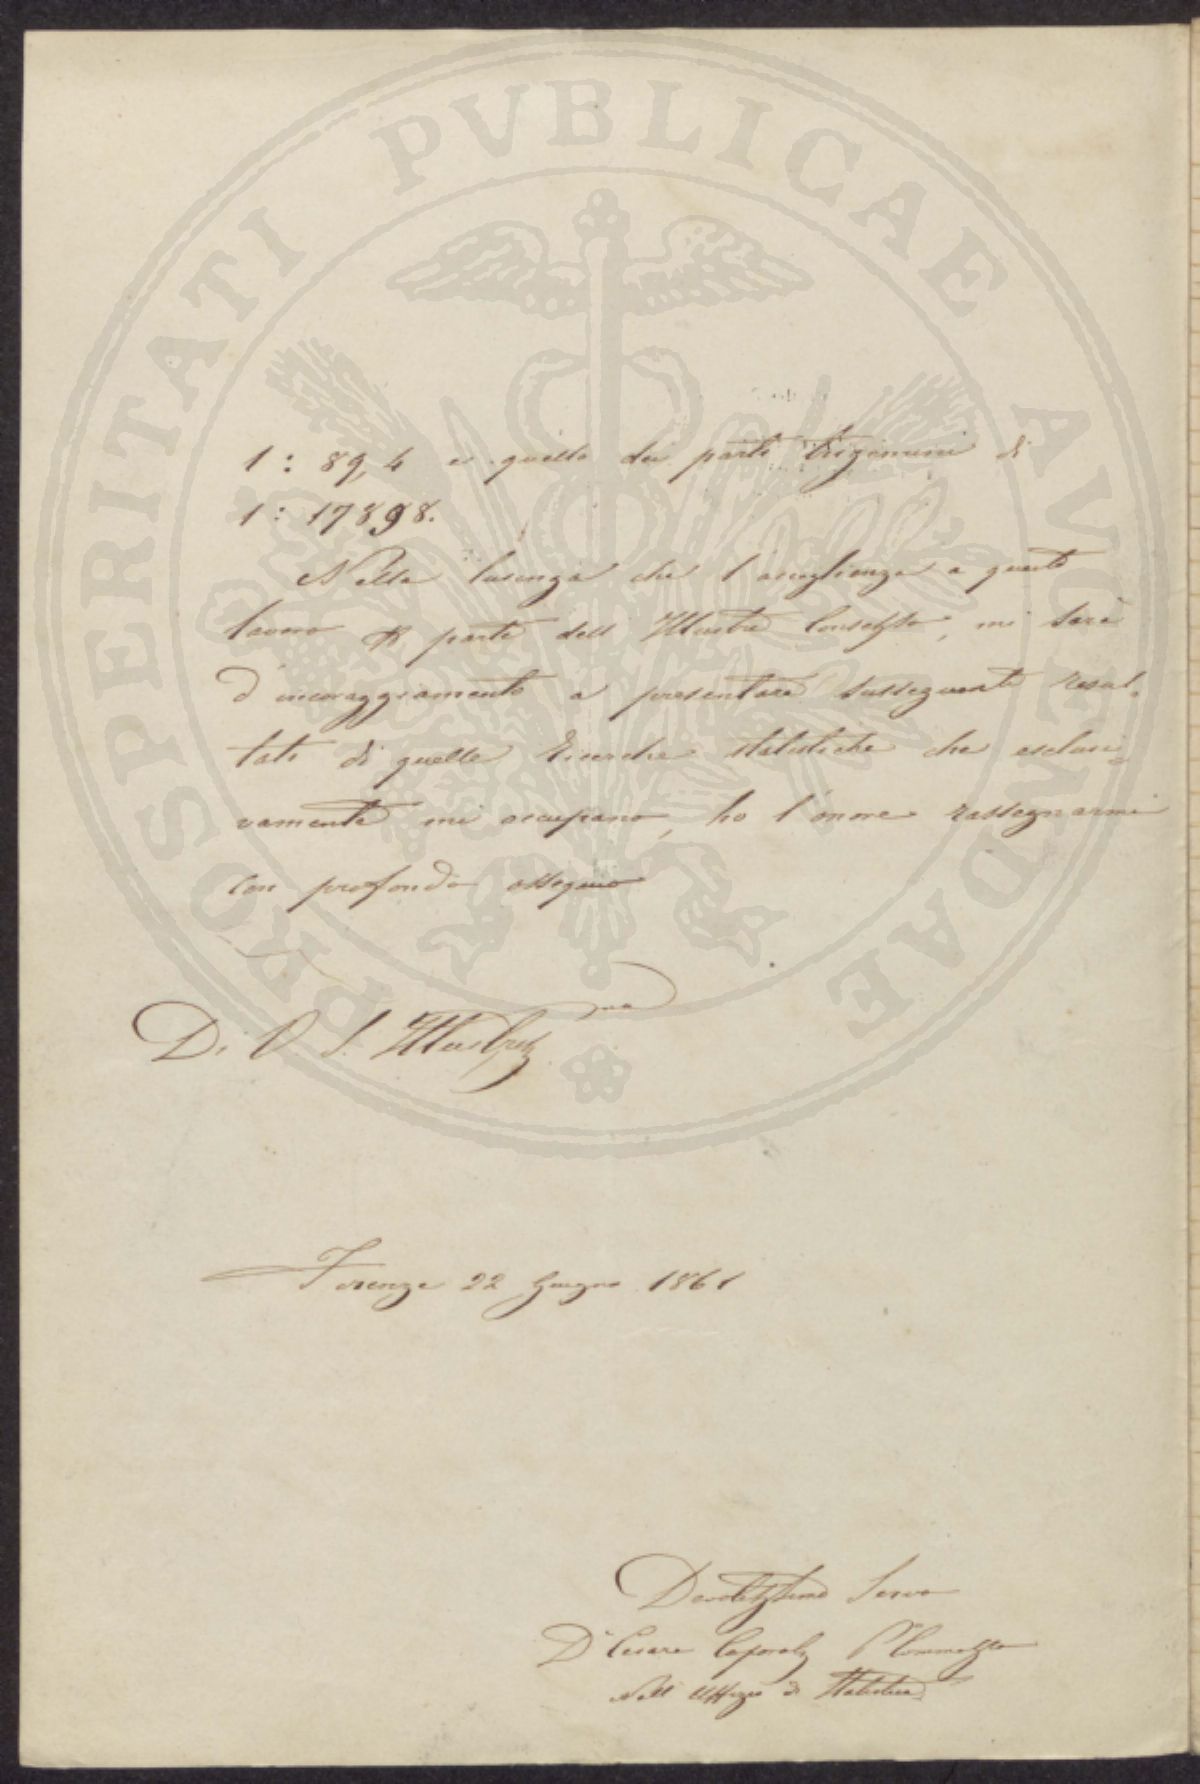 PROSPERITATI PVBLICAE AVGENDAE
1: 89,4 e quella dei parti trigemini di
1: 17898.
Nella lusinga che l'accoglienza a questo
lavoro parte dell' Illustre Consesso, mi sarà
d'incoraggiamento a presentare susseguenti resul-
tati di quelle ricerche statistiche che esclusi=
vamente mi occupano, ho l'onore rassegnarmi
con profondo ossequio
Di V. S. Illustris
ma
Firenze 22 Giugno 1861
Devotissimo Servo
D. Cesare Commesso
Nell' Uffizio di Statistica